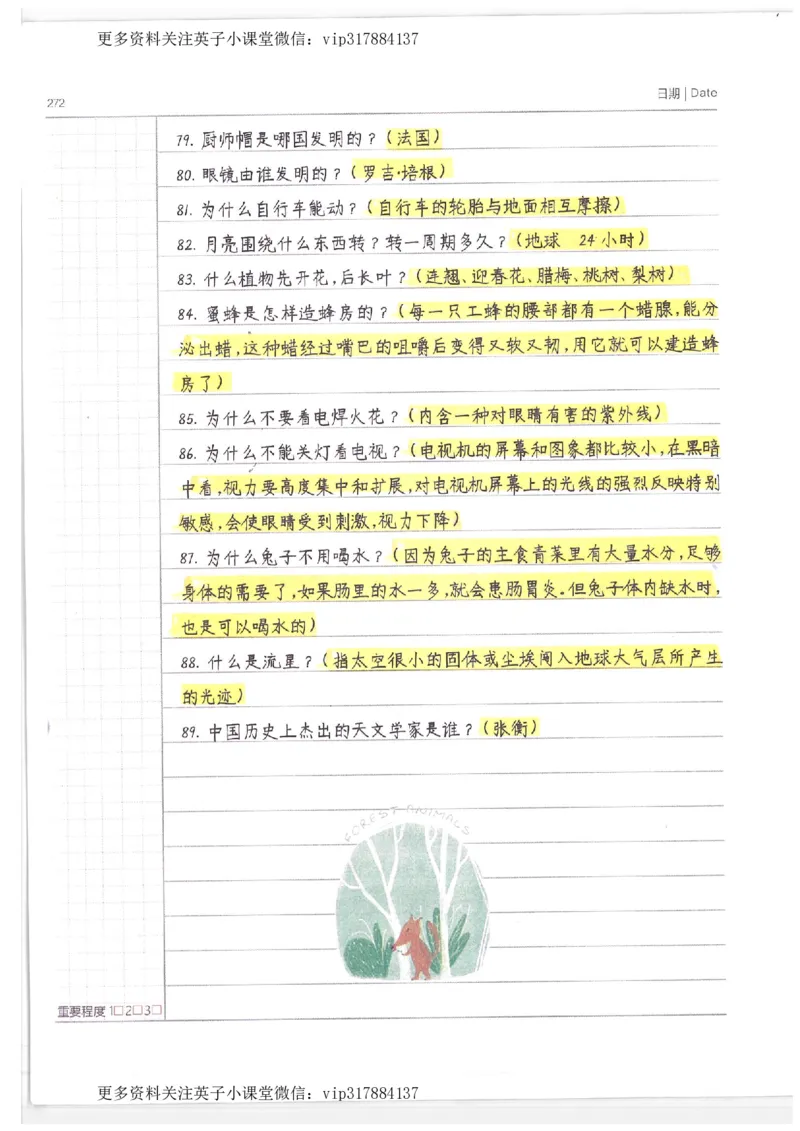 更多资料关注英子小课堂微信：vip317884137
272
日期 | Date
79. 厨师帽是哪国发明的？（法国）
80. 眼镜由谁发明的？（罗吉·培根）
81. 为什么自行车能动？（自行车的轮胎与地面相互摩擦）
82. 月亮围绕什么东西转？转一周期多久？（地球 24 小时）
83. 什么植物先开花，后长叶？（连翘、迎春花、腊梅、桃树、梨树）
84. 蜜蜂是怎样造蜂房的？（每一只工蜂的腰部都有一个蜡腺，能分
泌出蜡，这种蜡经过嘴巴的咀嚼后变得又软又韧，用它就可以建造蜂
房了）
85. 为什么不要看电焊火花？（内含一种对眼睛有害的紫外线）
86. 为什么不能关灯看电视？（电视机的屏幕和图象都比较小，在黑暗
中看，视力要高度集中和扩展，对电视机屏幕上的光线的强烈反映特别
敏感，会使眼睛受到刺激，视力下降）
87. 为什么兔子不用喝水？（因为兔子的主食青菜里有大量水分，足够
身体的需要了，如果肠里的水一多，就会患肠胃炎。但兔子体内缺水时，
也是可以喝水的）
88. 什么是流星？（指太空很小的固体或尘埃闯入地球大气层所产生
的光迹）
89. 中国历史上杰出的天文学家是谁？（张衡）
FOREST ANIMALS
重要程度 1□2□3□
更多资料关注英子小课堂微信：vip317884137